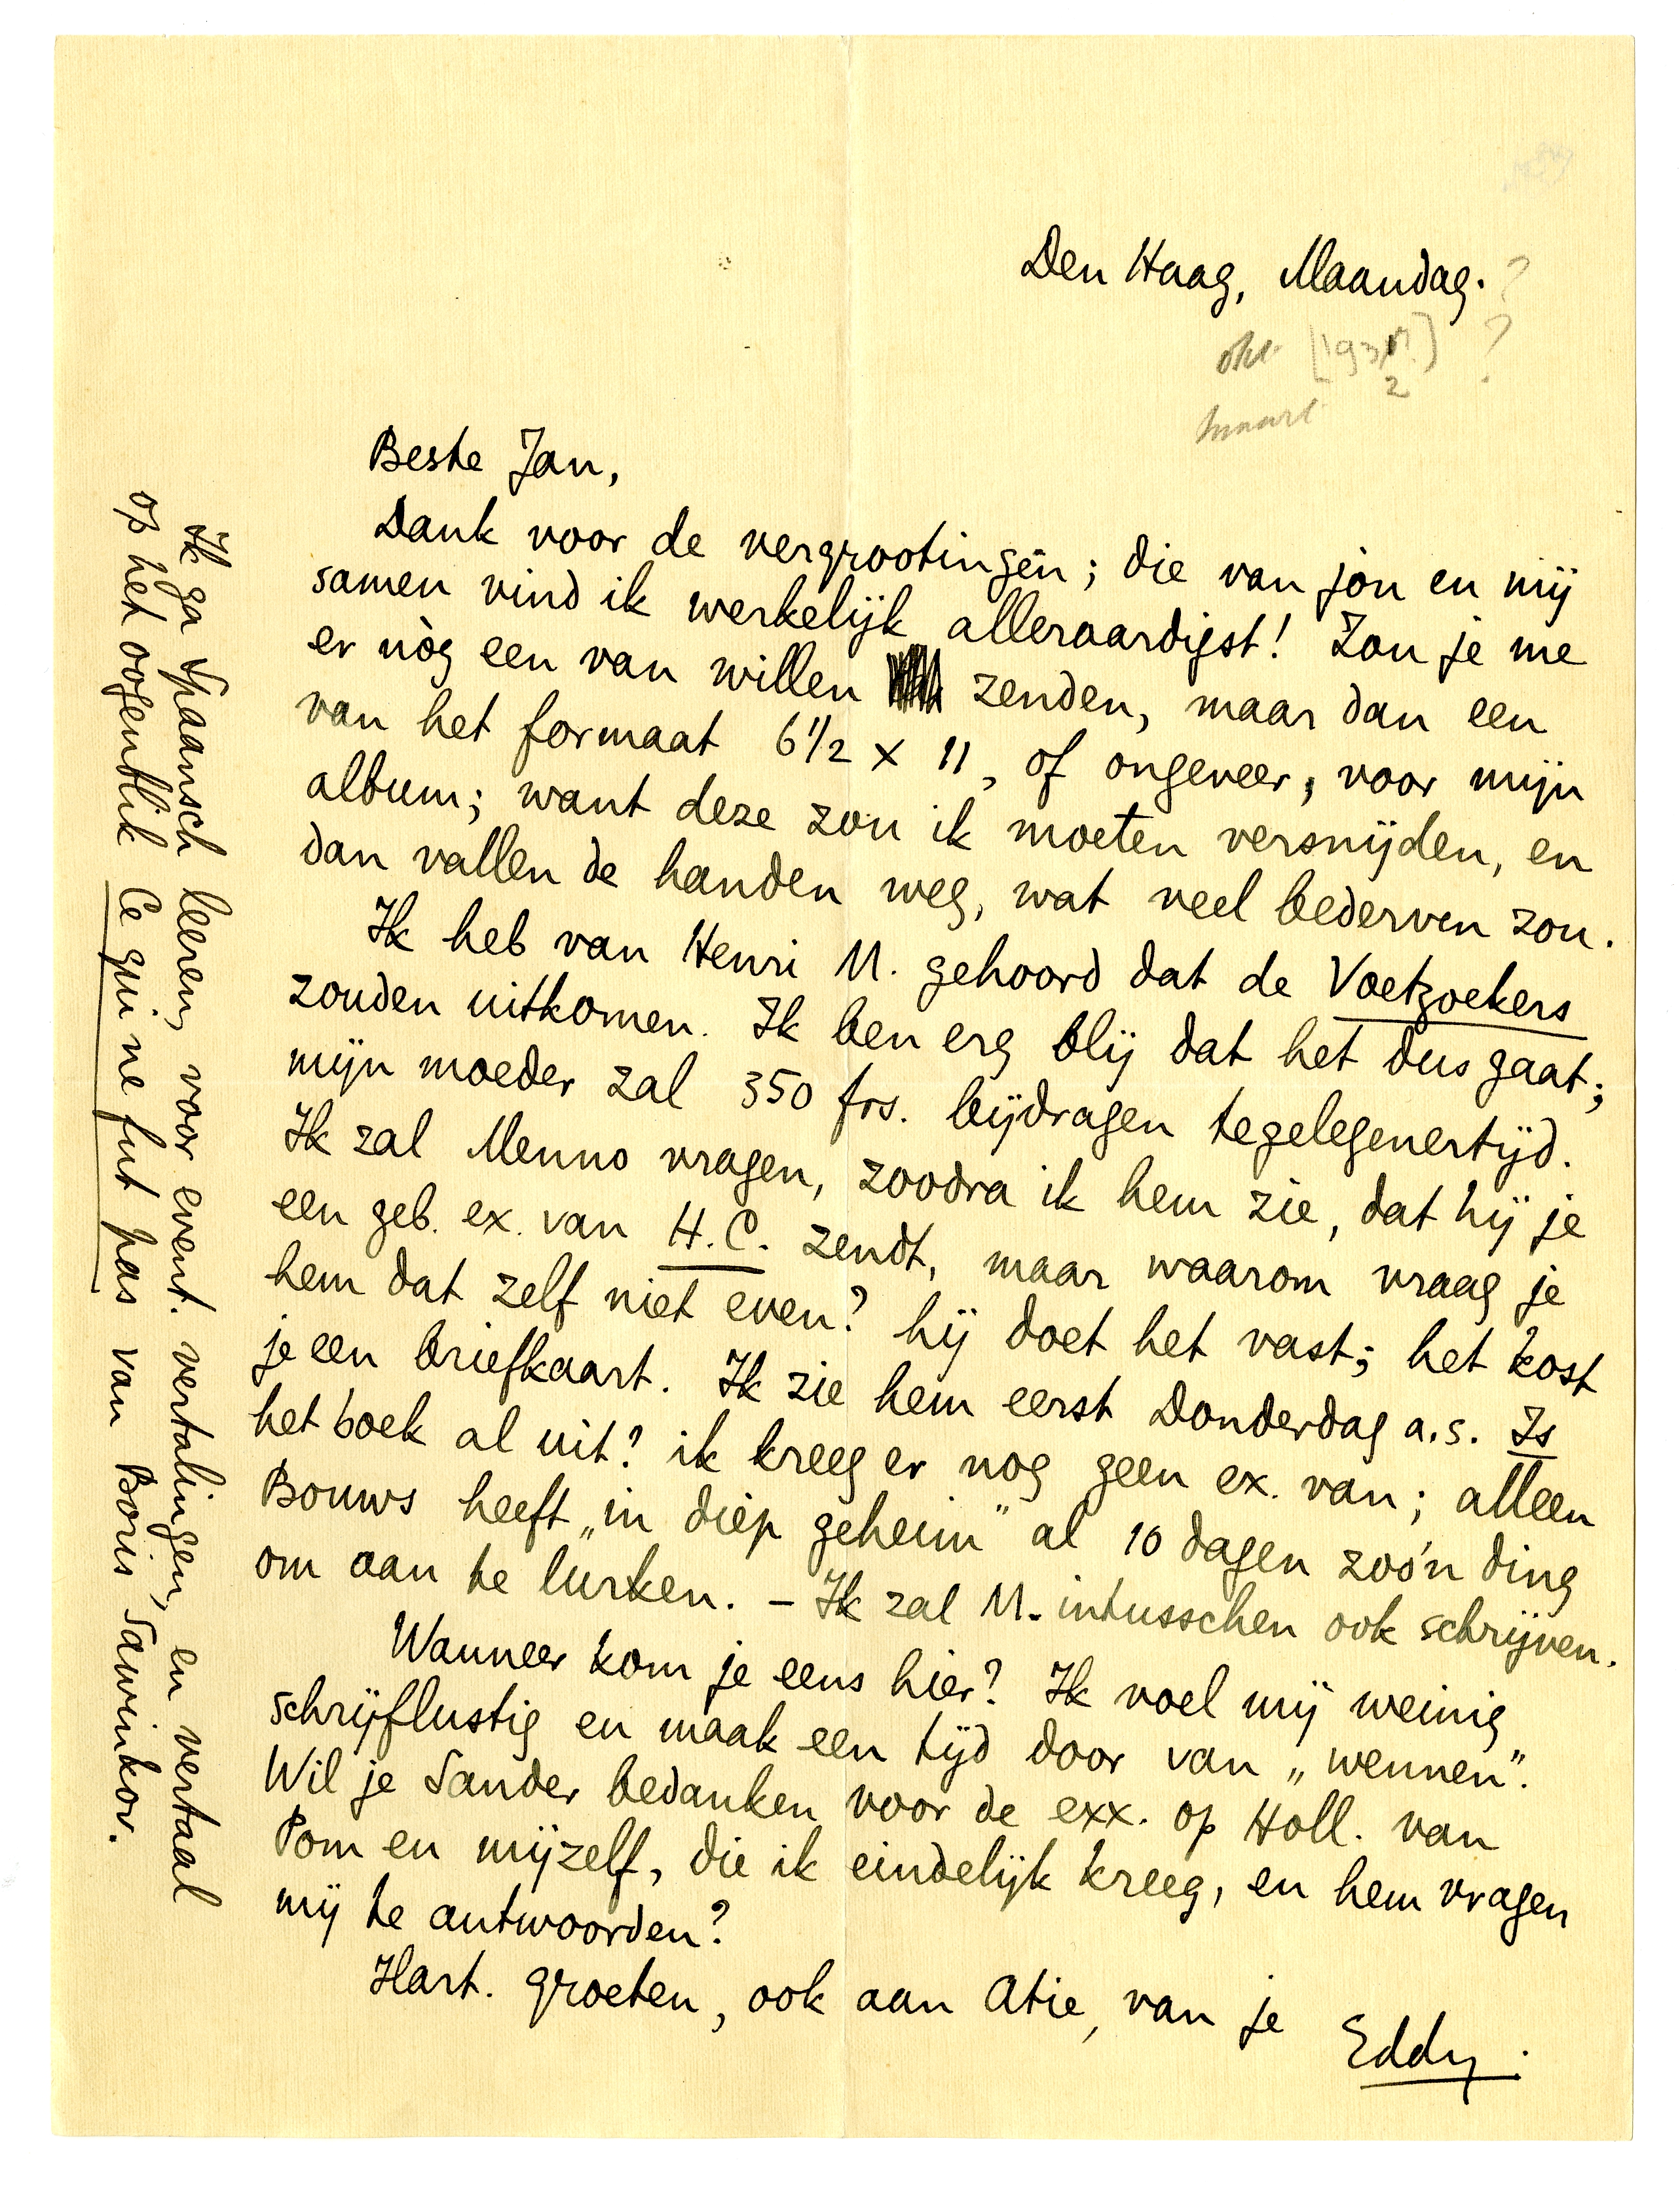 Den Haag, Maandag. ?
okt [1931?] ?
2
maart
Beste Jan,
Dank voor de vergrootingen; die van jou en mij
samen vind ik werkelijk alleraardigst! Zou je me
er nòg een van willen zenden, maar dan een
van het formaat 6 1/2 x 11, of ongeveer, voor mijn
album; want deze zou ik moeten versnijden, en
dan vallen de handen weg, wat veel bederven zou.
Ik heb van Henri M. gehoord dat de Voetzoekers
zouden uitkomen. Ik ben erg blij dat het dus gaat;
mijn moeder zal 350 frs. bijdragen tegelegenertijd.
Ik zal Menno vragen, zoodra ik hem zie, dat hij je
een geb. ex. van H.C. zendt, maar waarom vraag je
hem dat zelf niet even? hij doet het vast; het kost
je een briefkaart. Ik zie hem eerst Donderdag a.s. Is
het boek al uit? ik kreeg er nog geen ex. van; alleen
Bouws heeft „in diep geheim" al 10 dagen zoo'n ding
om aan te lurken. – Ik zal M. intusschen ook schrijven.
Wanneer kom je eens hier? Ik voel mij weinig
schrijflustig en maak een tijd door van „wennen".
Wil je Sander bedanken voor de exx. op Holl. van
Pom en mijzelf, die ik eindelijk kreeg, en hem vragen
mij te antwoorden?
Hart. groeten, ook aan Atie, van je
Eddy.
Ik ga Spaansch leeren, voor event. vertalingen, en vertaal
op het oogenblik Ce qui ne fut pas van Boris Sawinkov.